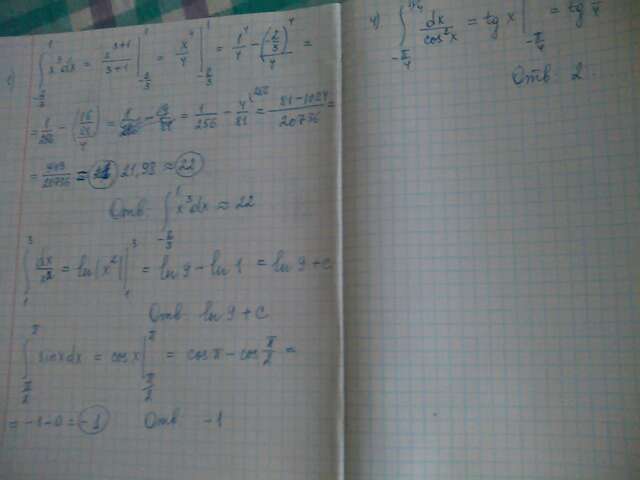 ∫_{-2/3}^{1} x³dx = x^{3+1}/3+1 |_{-2/3}^{1} = x⁴/4 |_{-2/3}^{1} = 1⁴/4 - (2/3)⁴/4 =
= 1/256 - 4/81 = 81-1024/20736 =
21,93 ≈ 22
Отв. ∫_{-2/3}^{1} x³dx ≈ 22
∫_{1}^{3} dx/x² = ln|x²| |_{1}^{3} = ln 9 - ln 1 = ln 9 + c
Отв. ln 9 + c
∫_{π/2}^{π} sinxdx = cosx |_{π/2}^{π} = cosπ - cos π/2 =
= -1-0 = -1 Отв -1
4) ∫_{-π/4}^{π/4} dx/cos²x = tg x |_{-π/4} = tg π/4
Отв. 2.